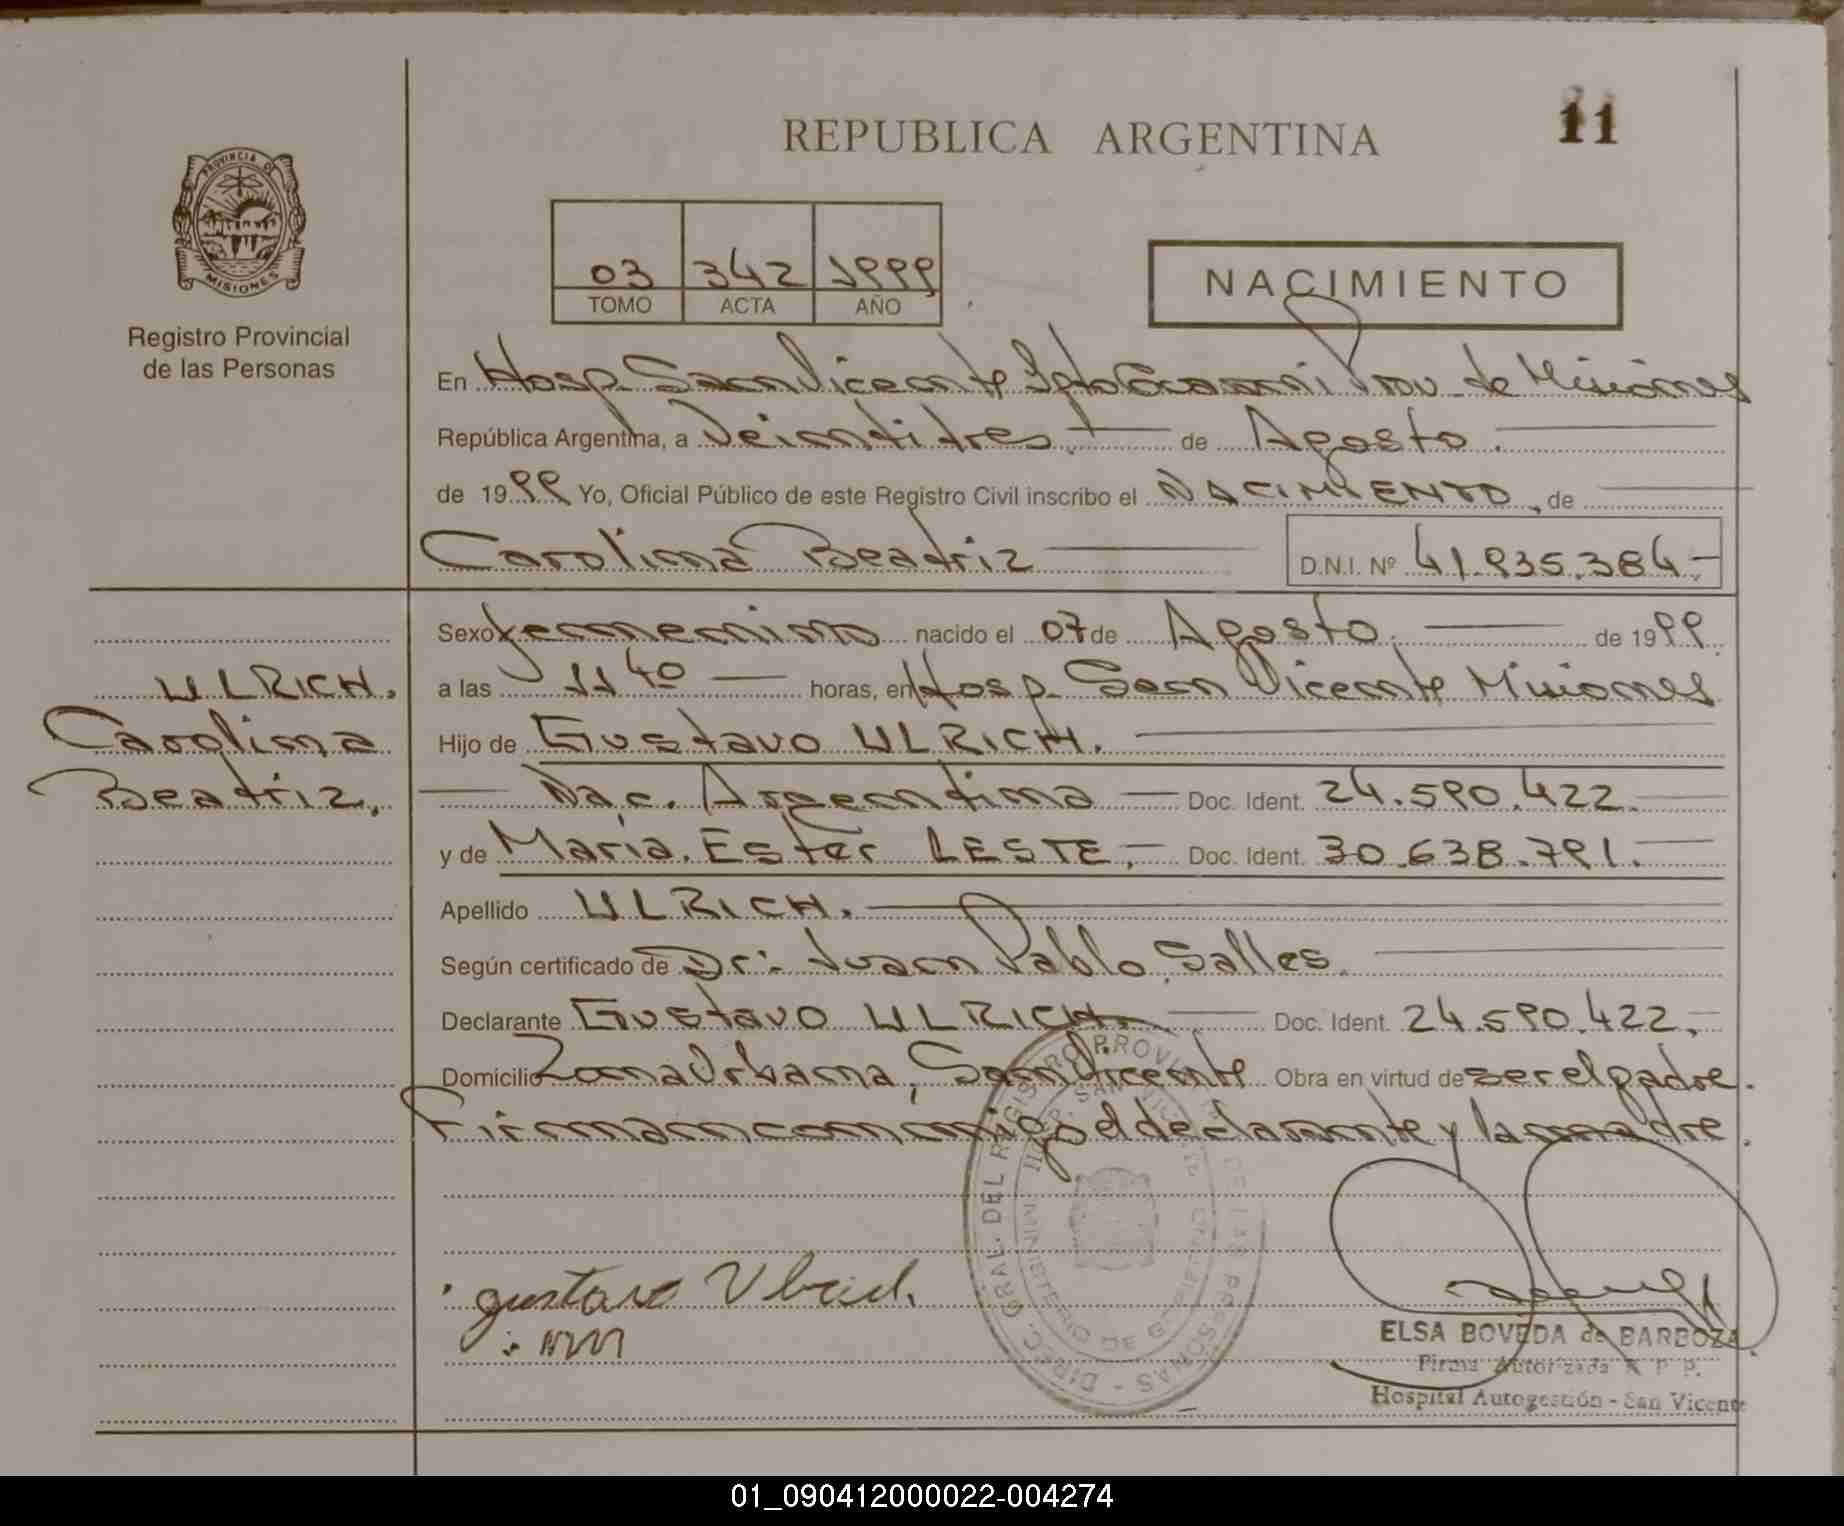 11
REPUBLICA ARGENTINA
PROVINCIA DE
MISIONES
Registro Provincial
de las Personas
03 342 1999
TOMO ACTA AÑO
NACIMIENTO
En Hosp. San Vicente Dpto Guarani Prov. de Misiones
República Argentina, a Veintitres de Agosto.
de 1999 Yo, Oficial Público de este Registro Civil inscribo el NACIMIENTO, de
Carolina Beatriz D.N.I. Nº 41.935.384.-
ULRICH.
Carolina
Beatriz.
Sexo femenino nacido el 07 de Agosto. de 1999.
a las 11 40 horas, en Hosp. San Vicente Misiones
Hijo de Gustavo ULRICH.
Nac. Argentina Doc. Ident. 24.590.422.
y de María Ester LESTE. Doc. Ident. 30.638.791.
Apellido ULRICH.
Según certificado de Dr: Juan Pablo Salles.
Declarante Gustavo ULRICH. Doc. Ident. 24.590.422.
Domicilio Zona Urbana, San Vicente Obra en virtud de ser el padre.
Firman conmigo el declarante y la madre.
DIREC. GRAL. DEL REGISTRO PROVINCIAL DE LAS PERSONAS
HOSP. SAN VICENTE
MINISTERIO DE GOBIERNO
gustavo Ulrich.
ELSA BOVEDA de BARBOZA
Firma Autorizada R. P. P.
Hospital Autogestión - San Vicente
01_090412000022-004274